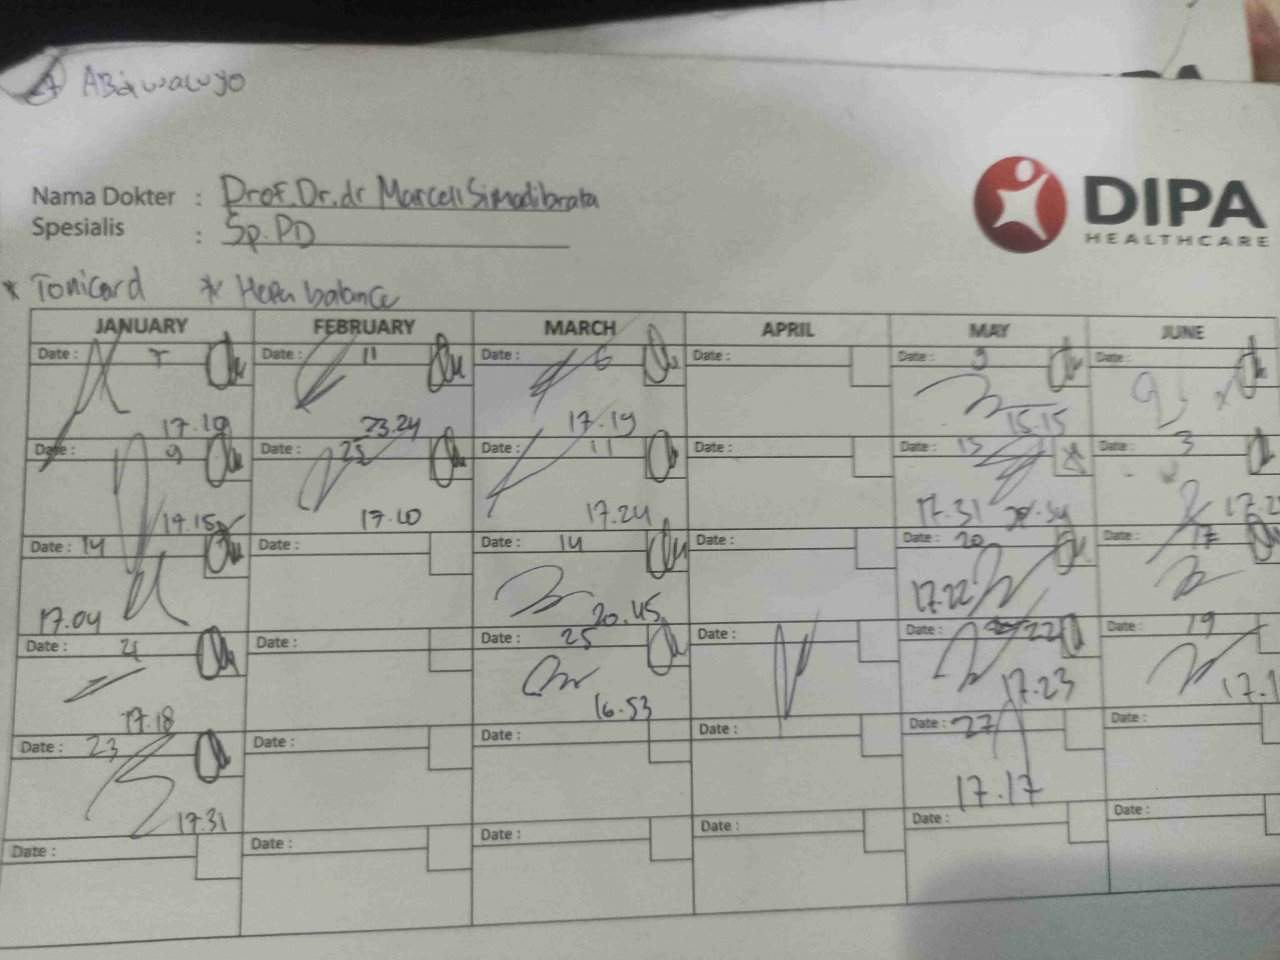 ABdiwaluyo
DIPA
HEALTHCARE
Nama Dokter : Prof. Dr. dr Marcell Simadibrata
Spesialis : Sp. PD
* Tonicard * Hepa balance
JANUARY FEBRUARY MARCH APRIL MAY JUNE
Date : Date : 11 Date : 6 Date : Date : 9 Date :
17.19 23.24 17.19 15.15
Date : 9 Date : 25 Date : 11 Date : Date : 13 Date : 3
17.10 17.24 17.31
Date : 14 Date : Date : 14 Date : Date : 20 Date : 17
17.04 20.45 17.22
Date : 21 Date : Date : 25 Date : Date : 22 Date : 19
17.18 16.53 17.23
Date : 23 Date : Date : Date : Date : 27 Date :
17.31 17.17
Date : Date : Date : Date : Date : Date :